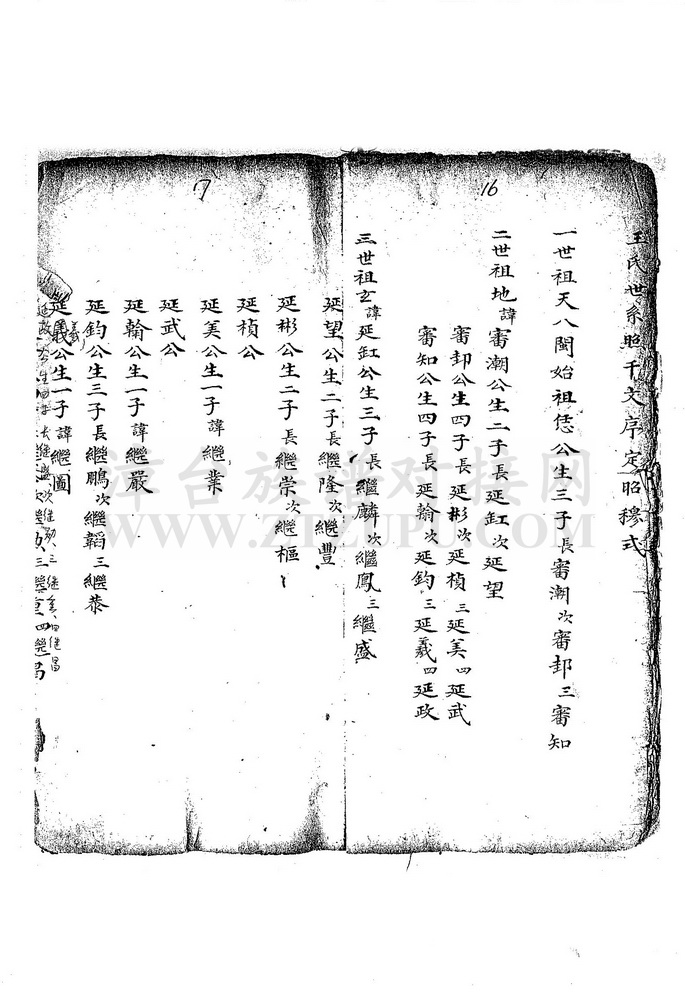 16
王氏世系照千文序定昭穆式
一世祖天八閩始祖恁公生三子長審潮次審邽三審知
二世祖地諱審潮公生二子長延缸次延望
審邽公生四子長延彬次延楨三延美四延武
審知公生四子長延翰次延鈞三延羲四延政
三世祖玄諱延缸公生三子長繼麟次繼鳳三繼盛
17
延望公生二子長繼隆次繼豐
延彬公生二子長繼崇次継樞
延楨公
延美公生一子諱継業
延武公
延翰公生一子諱繼嚴
延鈞公生三子長繼鵬次繼韜三繼恭
延羲公生一子諱継圖
延政公生四子長継 次継勳三繼重四繼昌
江台族谱对接网
WWW.ZTZUPU.COM